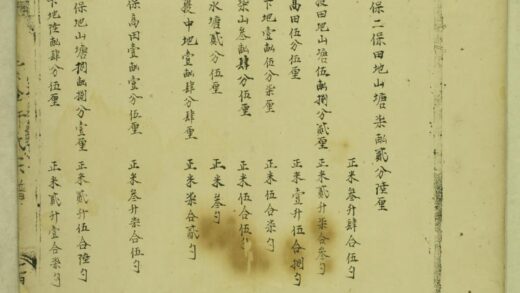 保二保田地山塘柒畝貳分陸厘
正米叁升肆合伍勺
田地山塘伍畝捌分貳厘 正米貳升柒合叁勺
高田伍分伍厘 正米壹升伍合捌勺
下地壹畝伍分柒厘 正米伍合柒勺
柒山叁畝肆分伍厘 正米伍合伍勺
水塘貳分伍厘 正米叁勺
中地壹畝肆分肆厘 正米柒合貳勺
保高田壹畝壹分伍厘 正米叁升柒合伍勺
保地山塘捌畝捌分壹厘 正米貳升伍合陸勺
地陸畝肆分伍厘 正米貳升壹合柒勺
氏宗譜